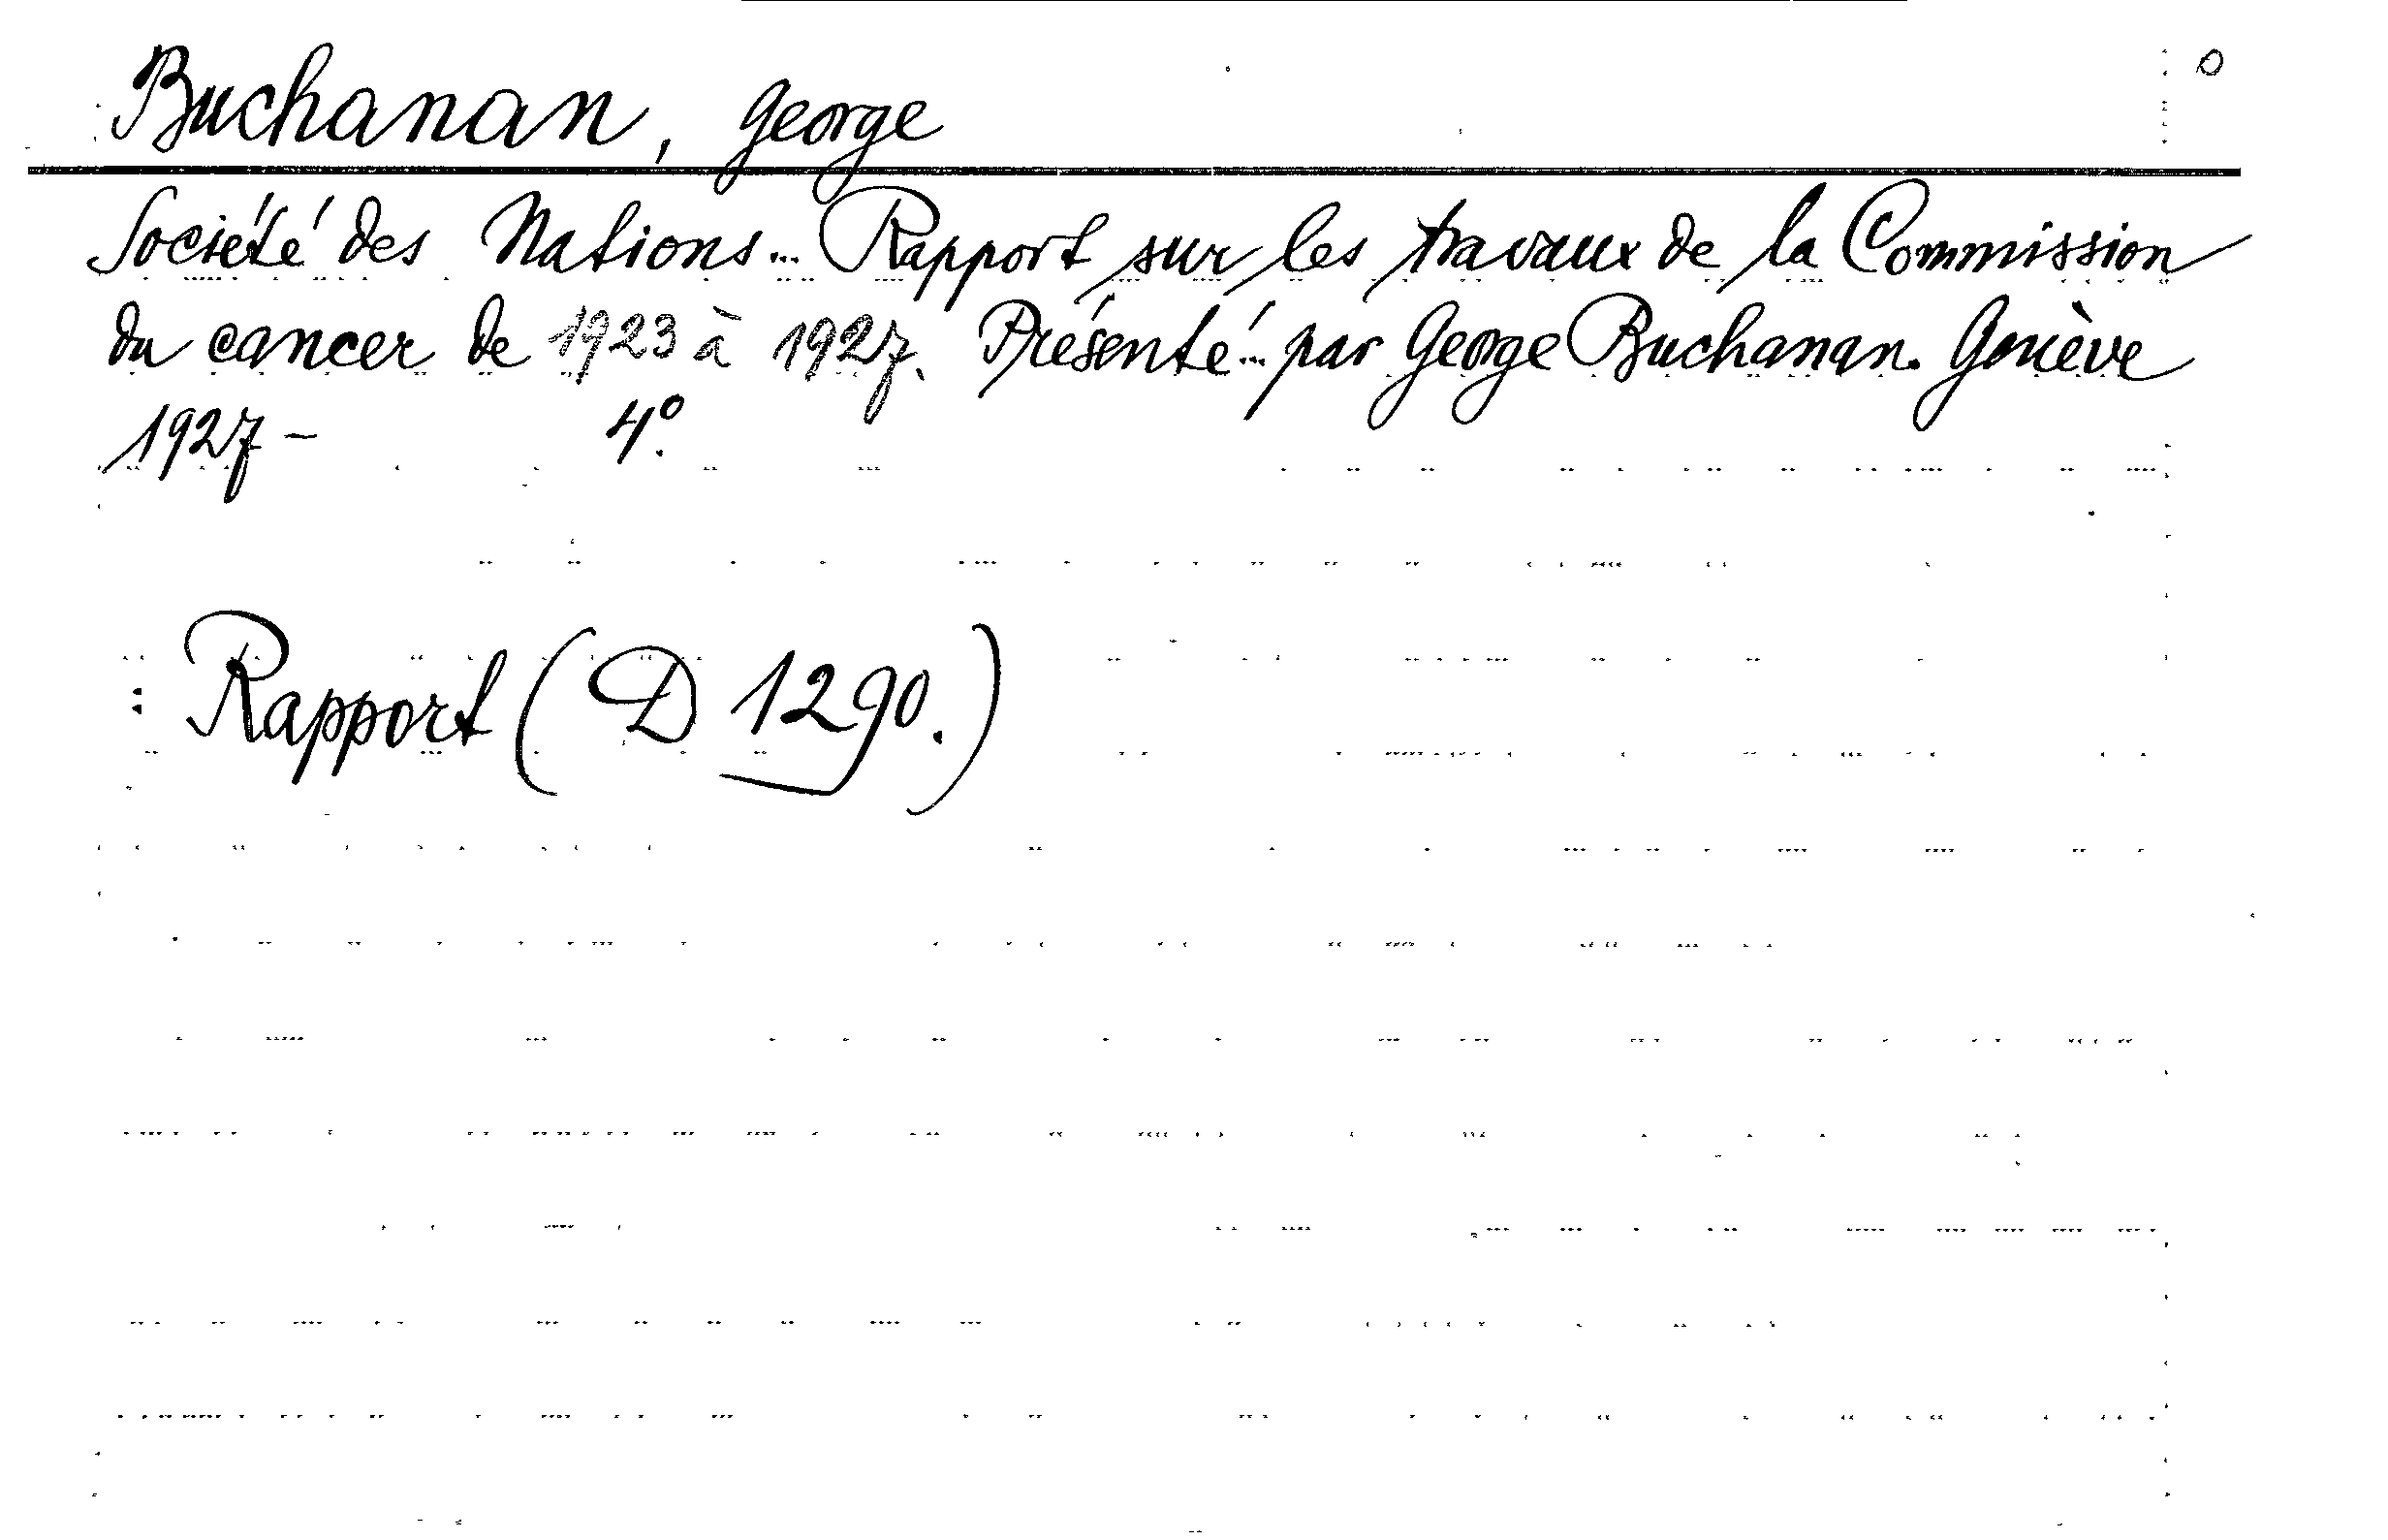 Buchanan, George
Société des Nations... Rapport sur les travaux de la Commission
du cancer de 1923 à 1927. Présenté... par George Buchanan. Genève
1927 - 4°.
Rapport (D 1290.)